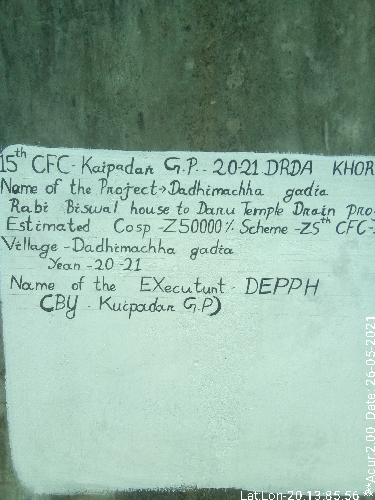 15th CFC- Kaipadar G.P.- 20-21 DRDA KHOR
Name of the Project→Dadhimachha gadia
Rabi Biswal house to Danu Temple Drain Pro
Estimated Cosp -Z50000% Scheme -Z5th CFC-
Village -Dadhimachha gadia
Year -20-21
Name of the EXecutunt- DEPPH
(BY - Kuipadar G.P)
LatLon-20.13:85.56
**Acur:2.00 Date: 26-05-2021